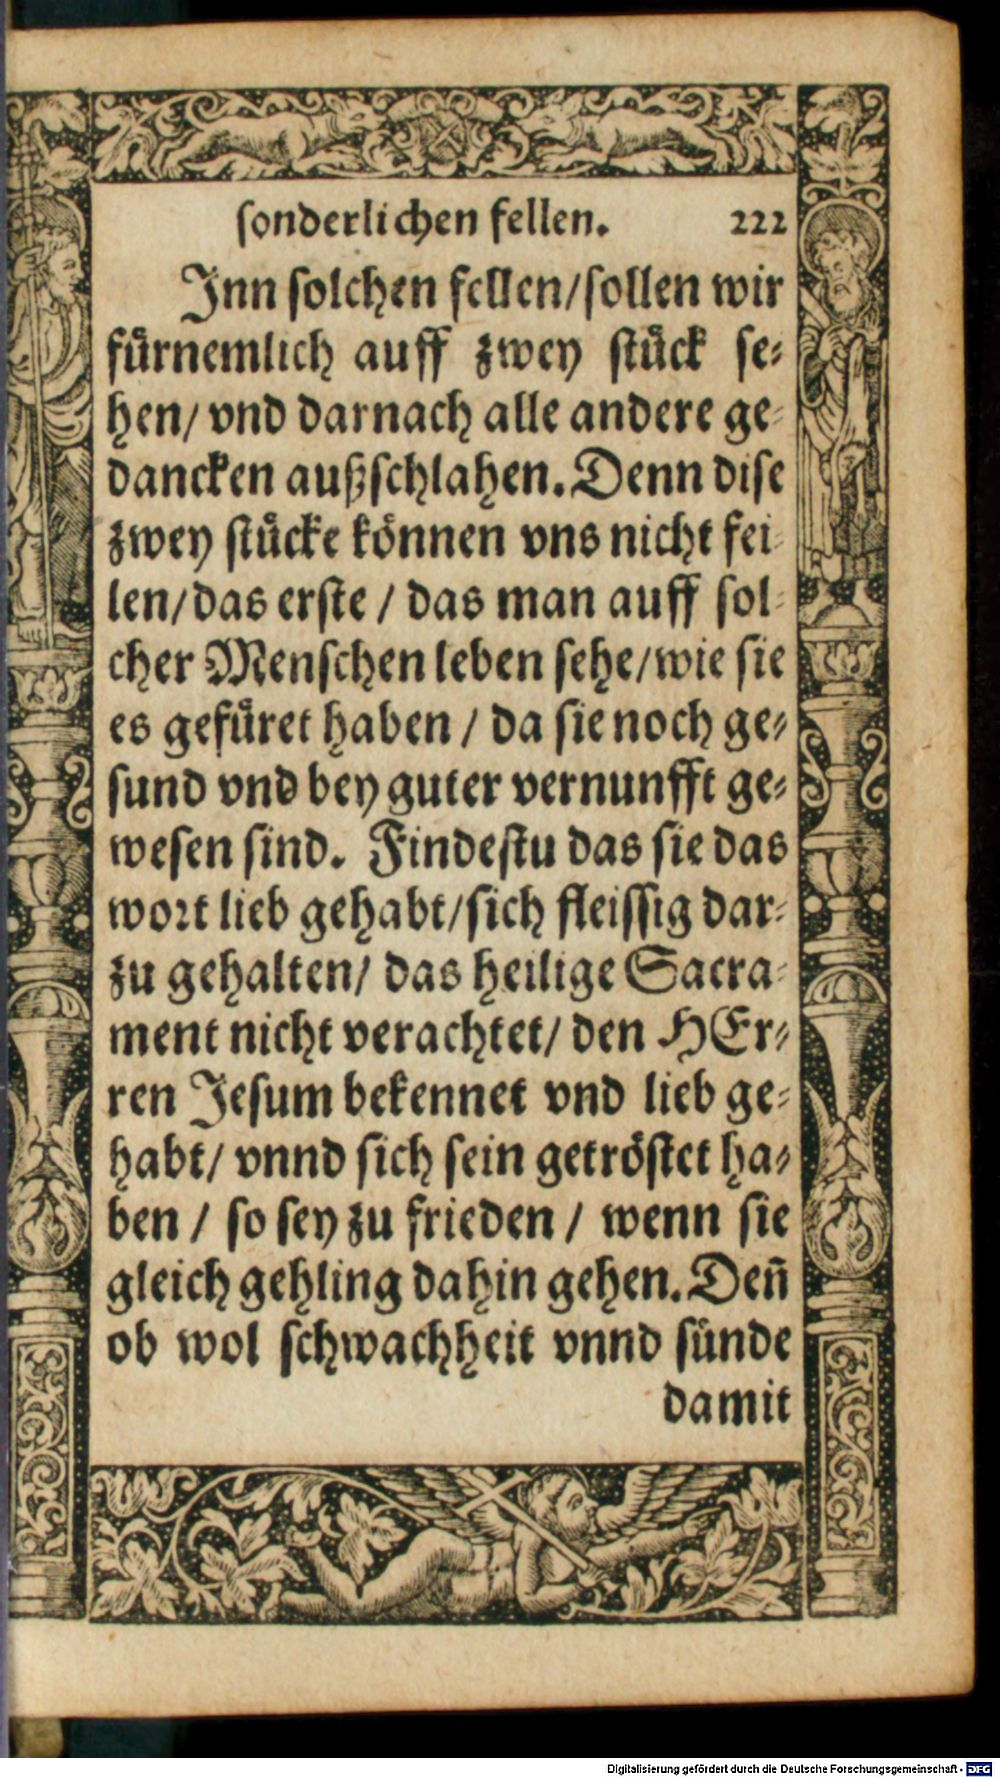 sonderlichen fellen. 222
Jnn solchen fellen/sollen wir
fürnemlich auff zwey stück se-
hen/ vnd darnach alle andere ge-
dancken außschlahen. Denn dise
zwey stücke können vns nicht fei-
len/das erste / das man auff sol-
cher Menschen leben sehe/wie sie
es gefüret haben / da sie noch ge-
sund vnd bey guter vernunfft ge-
wesen sind. Findestu das sie das
wort lieb gehabt/sich fleissig dar-
zu gehalten/ das heilige Sacra-
ment nicht verachtet/ den HEr-
ren Jesum bekennet vnd lieb ge-
habt/ vnnd sich sein getröstet ha-
ben / so sey zu frieden / wenn sie
gleich gehling dahin gehen. Deñ
ob wol schwachheit vnnd sünde
damit
Digitalisierung gefördert durch die Deutsche Forschungsgemeinschaft - DFG